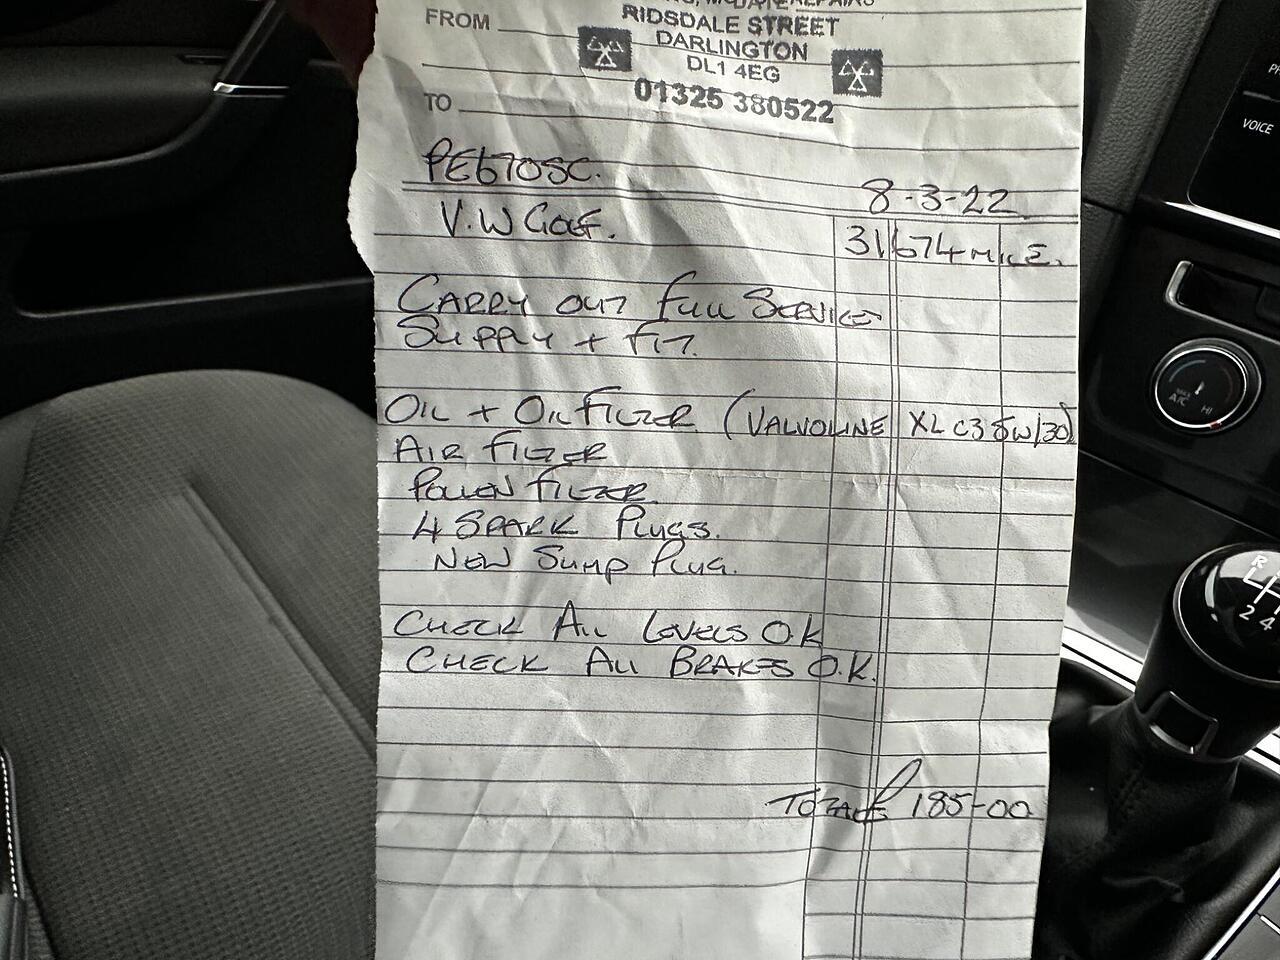 REPAIRS
RIDSDALE STREET
FROM
DARLINGTON
DL1 4EG
01325 380522
TO
PE67OSC.
8-3-22
V.W GOLF.
31674 MILE.
CARRY OUT FULL SERVICE
SUPPLY + FIT.
OIL + OIL FILTER (VALVOLINE XL C3 5W/30)
AIR FILTER
POLLEN FILTER
4 SPARK PLUGS.
NEW SUMP PLUG.
CHECK ALL LEVELS O.K
CHECK ALL BRAKES O.K.
TOTAL £185-00
VOICE
A/C
HI
R
2 4